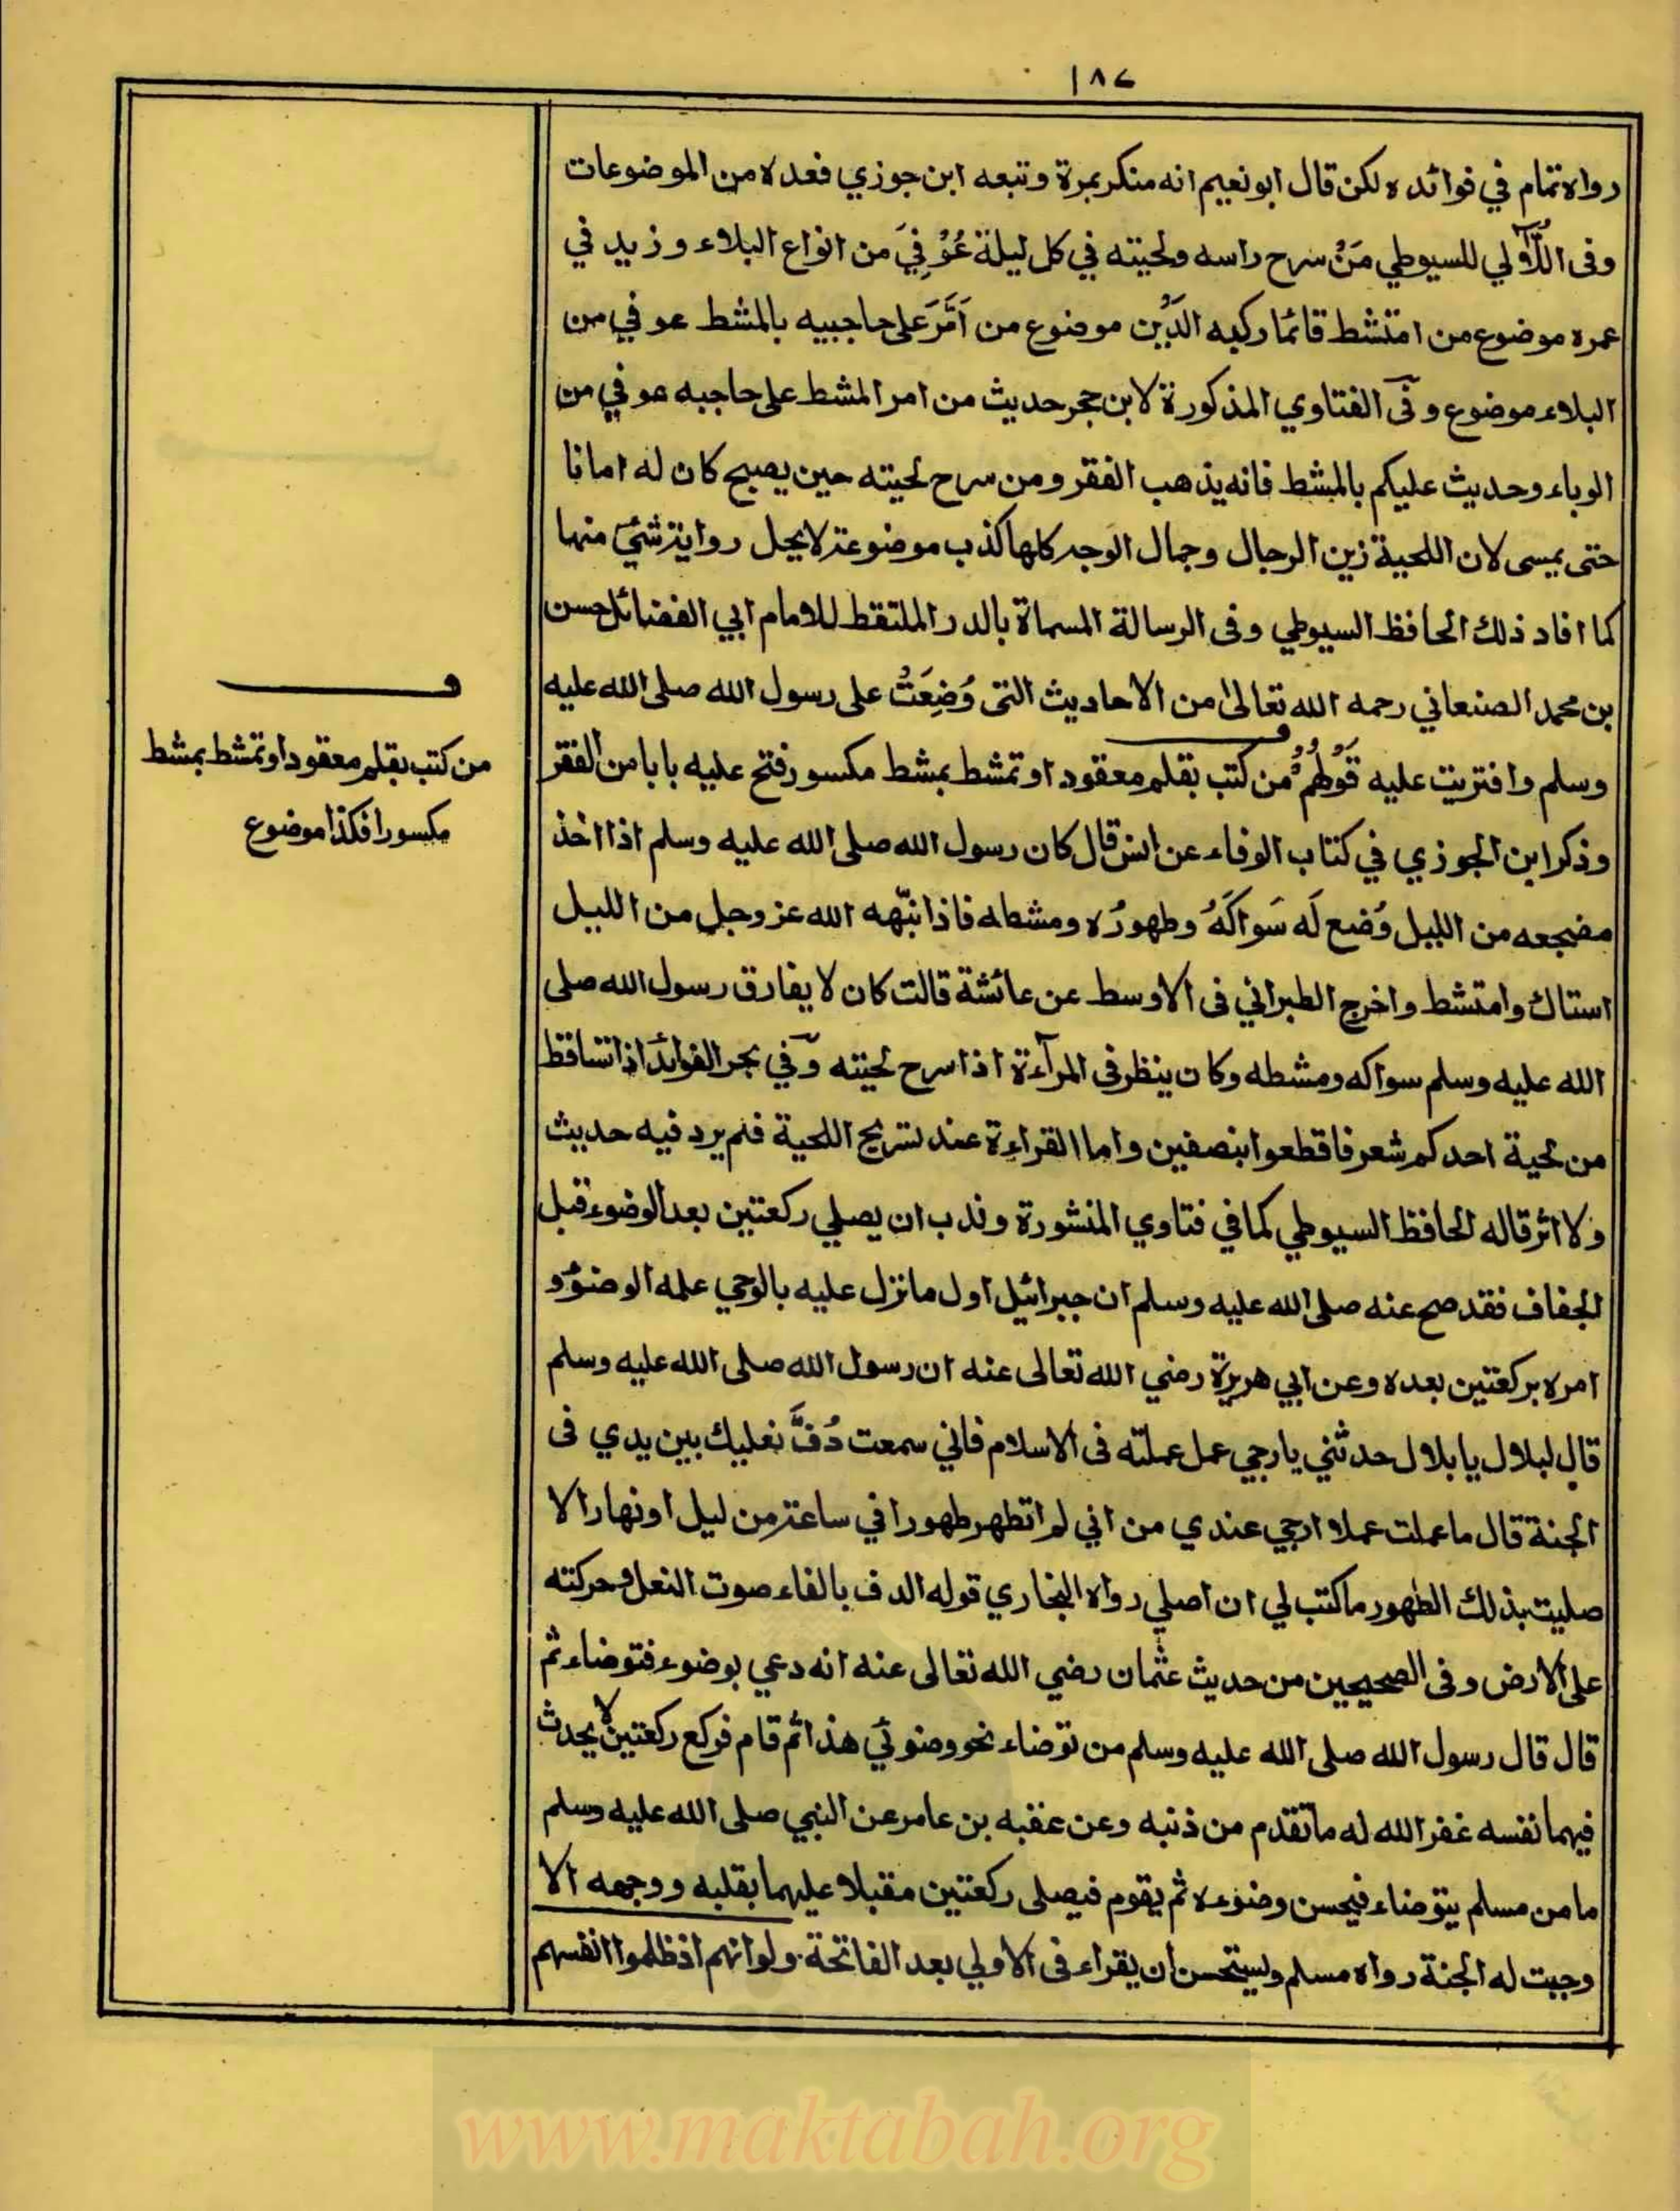 ١٨٧
رواه تمام في فوائده لكن قال ابو نعيم انه منكر بمرة وتبعه ابن جوزي فعده من الموضوعات
وفى اللُّآلي للسيوطي مَنْ سرح راسه ولحيته في كل ليلة عُوْفِيَ من انواع البلاء وزيد في
عمره موضوع من امتشط قائما ركبه الدَّيْن موضوع من اَمَّرَ على حاجبيه بالمشط عوفي من
البلاء موضوع وفى الفتاوي المذكورة لابن حجر حديث من امر المشط على حاجبه عوفي من
الوباء وحديث عليكم بالمشط فانه يذهب الفقر ومن سرح لحيته حين يصبح كان له امانا
حتى يمسى لان اللحية زين الرجال وجمال الوجه كلها كذب موضوعة لايحل رواية شئ منها
كما افاد ذلك الحافظ السيوطي وفى الرسالة المسماة بالدر الملتقط للامام ابي الفضائل حسن
بن محمد الصنعاني رحمه الله تعالى من الاحاديث التى وُضِعَتْ على رسول الله صلى الله عليه
وسلم وافتريت عليه قَوْلُهُمْ من كتب بقلم معقود او تمشط بمشط مكسور فتح عليه بابا من الفقر
وذكر ابن الجوزي في كتاب الوفاء عن انس قال كان رسول الله صلى الله عليه وسلم اذا اخذ
مضجعه من الليل وُضع لَه سَواكَهُ وطهورُه ومشطه فاذا نبّهه الله عز وجل من الليل
استاك وامتشط واخرج الطبراني فى الاوسط عن عائشة قالت كان لا يفارق رسول الله صلى
الله عليه وسلم سواكه ومشطه وكان ينظر فى المرآءة اذا سرح لحيته وفي بحر الفوائد اذا تساقط
من لحية احدكم شعر فاقطعوا بنصفين واما القراءة عند تسريح اللحية فلم يرد فيه حديث
ولا اثر قاله الحافظ السيوطي كما في فتاوي المنشورة وندب ان يصلي ركعتين بعد الوضوء قبل
الجفاف فقد صح عنه صلى الله عليه وسلم ان جبرائيل اول ما نزل عليه بالوحي علمه الوضوء و
امره بركعتين بعده وعن ابي هريرة رضي الله تعالى عنه ان رسول الله صلى الله عليه وسلم
قال لبلال يا بلال حدثني يارجي عمل عملته فى الاسلام فاني سمعت دُفَّ نعليك بين يدي فى
الجنة قال ما عملت عملا ارجي عندي من اني لم اتطهر طهورا في ساعة من ليل او نهار الا
صليت بذلك الطهور ما كتب لي ان اصلي رواه البخاري قوله الدف بالفاء صوت النعل وحركته
على الارض وفى الصحيحين من حديث عثمان رضي الله تعالى عنه انه دعي بوضوء فتوضاء ثم
قال قال رسول الله صلى الله عليه وسلم من توضاء نحو وضوئي هذا ثم قام فركع ركعتين لا يحدث
فيهما نفسه غفر الله له ما تقدم من ذنبه وعن عقبه بن عامر عن النبي صلى الله عليه وسلم
ما من مسلم يتوضاء فيحسن وضوءه ثم يقوم فيصلى ركعتين مقبلا عليهما بقلبه ووجهه الا
وجبت له الجنة رواه مسلم ويستحسن ان يقراء فى الاولي بعد الفاتحة ولو انهم اذ ظلموا انفسهم
من كتب بقلم معقود او تمشط بمشط
مكسورا فكذا موضوع
www.maktabah.org